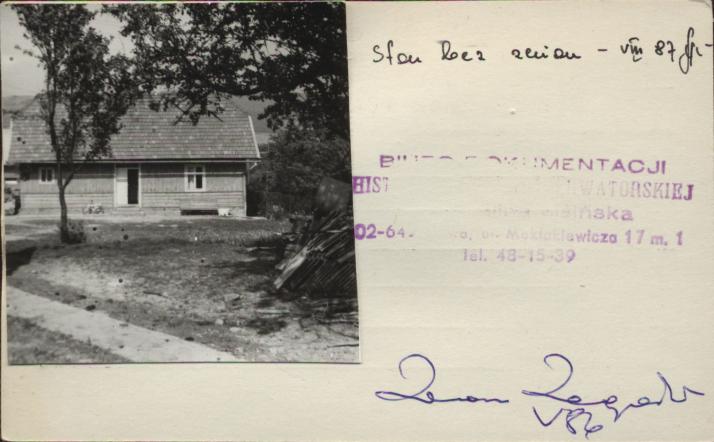 Stan bez zmian - VIII 87
BIURO DOKUMENTACJI
HIST WATORSKIEJ
ińska
02-64 wa, ul. Makłakiewicza 17 m. 1
Tel. 48-15-39
Zenon
V 86